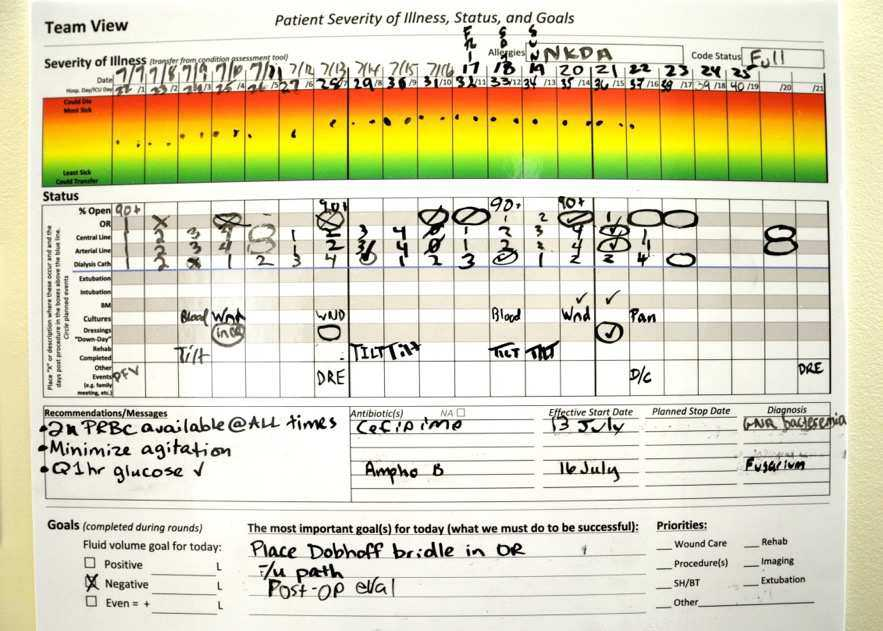 Team View
Patient Severity of Illness, Status, and Goals
Severity of Illness (transfer from condition assessment tool)
Allergies NKDA
Code Status Full
FRI SUN
Date 7/7 7/8 7/9 7/10 7/11 7/12 7/13 7/14 7/15 7/16 17 18 19 20 21 22 23 24 25
Hosp. Day/ICU Day 22 /1 23 /2 24 /3 25 /4 26 /5 27 /6 28 /7 29 /8 30 /9 31 /10 32 /11 33 /12 34 /13 35 /14 36 /15 37 /16 38 /17 39 /18 40 /19 /20 /21
Could Die
Most Sick
Least Sick
Could Transfer
Status
Place "X" or description where these occur and and the days post procedure in the boxes above the blue line. Circle planned events
% Open 90+ 90+ 90+ 90+
OR X 1 2
Central Line 1 2 3 4 1 2 3 4 0 1 2 3 4 1
Arterial Line 1 2 3 4 1 2 4 0 1 2 2 4 4
Dialysis Cath 1 2 X 1 2 3 4 1 2 3 1 2 3 4
Extubation
Intubation
BM ✓ ✓
Cultures Blood Wnd WND Blood Wnd Pan
Dressings in OR ✓
"Down-Day"
Rehab Completed Tilt TILT Tilt TILT TILT
Other Events (e.g. family meeting, etc.) PFV DRE D/C DRE
Recommendations/Messages
• 2u PRBC available @ ALL times
• Minimize agitation
• Q1hr glucose ✓
Antibiotic(s) NA Effective Start Date Planned Stop Date Diagnosis
Cefipime 13 July GNR bacteremia
Ampho B 16 July Fusarium
Goals (completed during rounds)
Fluid volume goal for today:
Positive L
X Negative L
Even = + L
The most important goal(s) for today (what we must do to be successful):
Place Dobhoff bridle in OR
F/u path
Post-op eval
Priorities:
Wound Care Rehab
Procedure(s) Imaging
SH/BT Extubation
Other